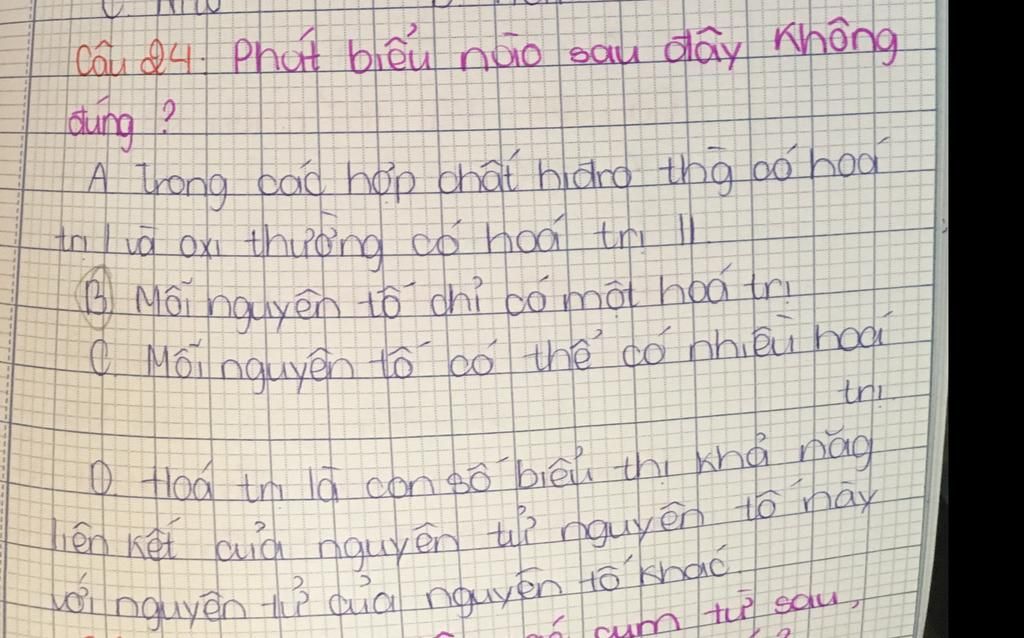 Câu 24. Phát biểu nào sau đây không
đúng ?
A Trong các hợp chất hidro thg có hoá
trị I và oxi thường có hoá trị II
B Mỗi nguyên tố chỉ có một hoá trị
C. Mỗi nguyên tố có thể có nhiều hoá
trị
D. Hoá trị là con số biểu thị khả năg
liên kết của nguyên tử nguyên tố này
với nguyên tử của nguyên tố khác
cụm từ sau,